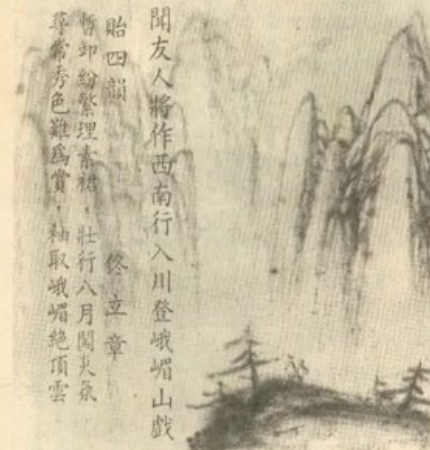 聞友人將作西南行入川登峨嵋山戲
貽四韻 佟立章
暫卸紛繁理素裙，壯行八月闖炎氛
尋常秀色難為賞，袖取峨嵋絕頂雲